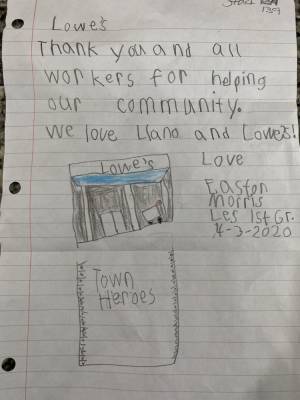 Lowe's
Thank you and all
workers for helping
our community.
We love Llano and Lowe's!
Love
Lowe's
Easton
Morris
Les 1st Gr.
4-3-2020
Town
Heroes